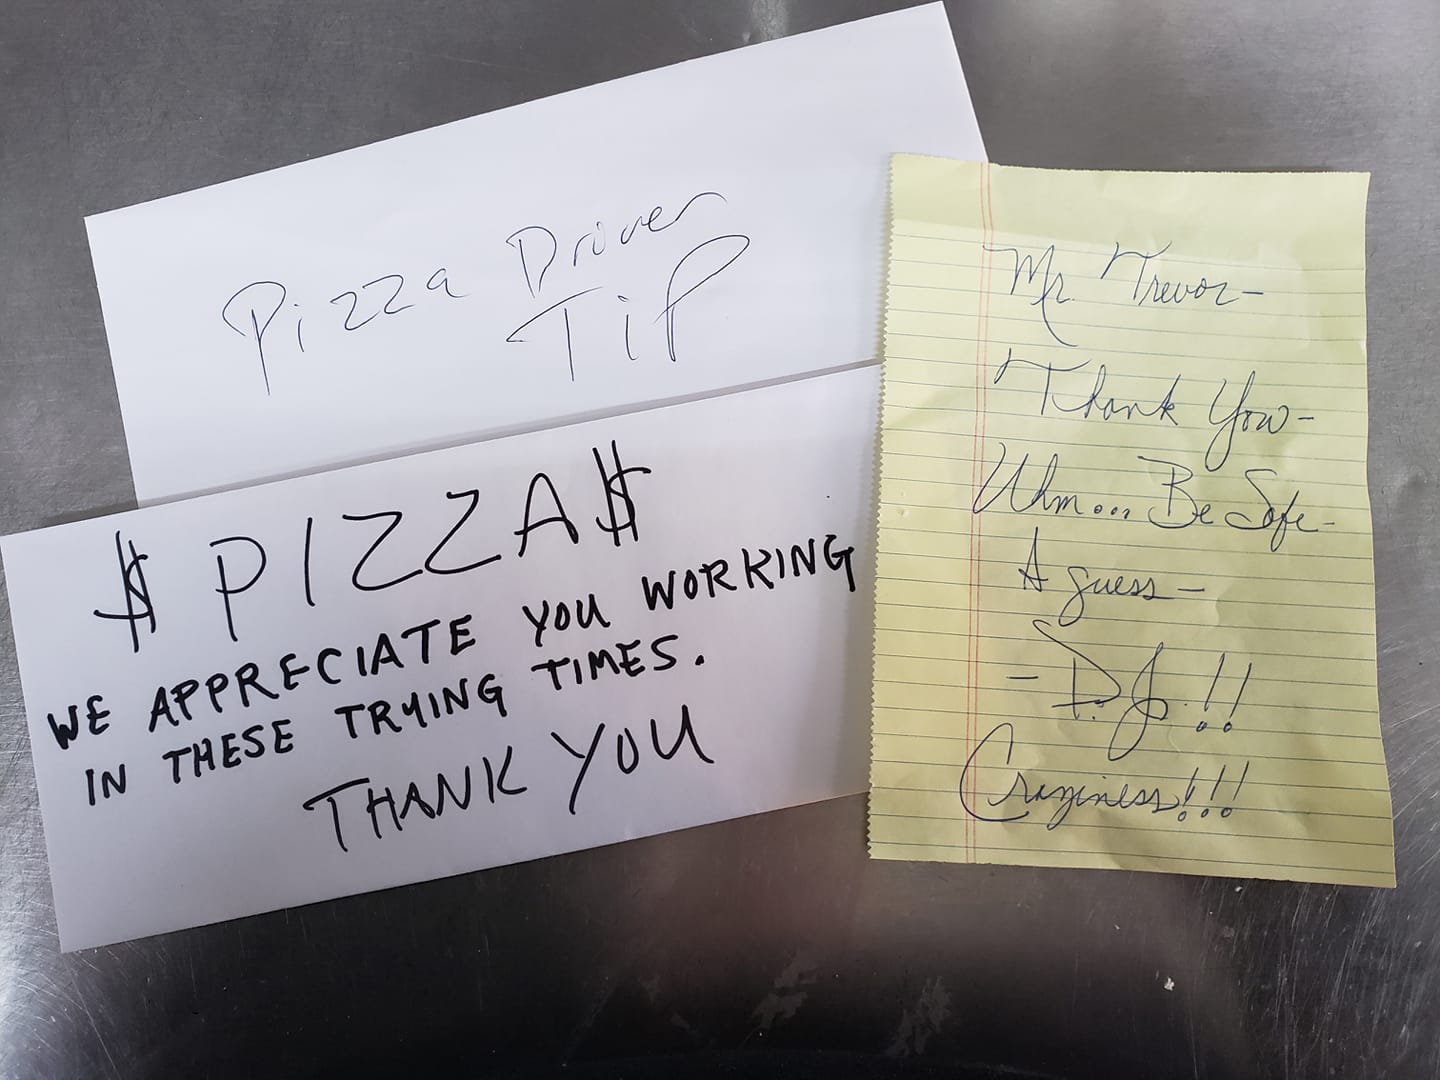 Pizza Driver
Tip
$ PIZZA $
WE APPRECIATE YOU WORKING
IN THESE TRYING TIMES.
THANK YOU
Mr. Trevor-
Thank You-
Uhm... Be Safe-
A guess-
- D.J.!!
Craziness!!!